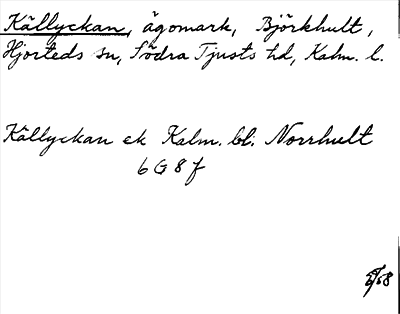 Källyckan, ägomark, Björkhult,
Hjorteds sn, Södra Tjusts hd, Kalm. l.
Källyckan ek Kalm. bl. Norrhult
6 G 8 f